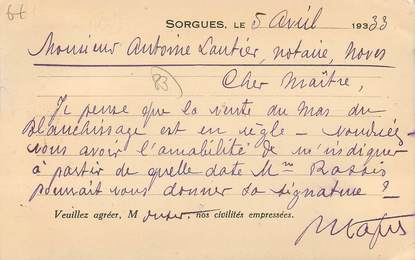 64
SORGUES, LE 5 Avril 1933 33
Monsieur Antoine Lautier, notaire, Noves
83
Cher Maître,
Je pense que la vente du Mas du
Blanchissage est en règle - voudriez-
vous avoir l'amabilité de m'indiquer
à partir de quelle date Mme
pourrait vous donner sa signature ?
Veuillez agréer, M nos civilités empressées.